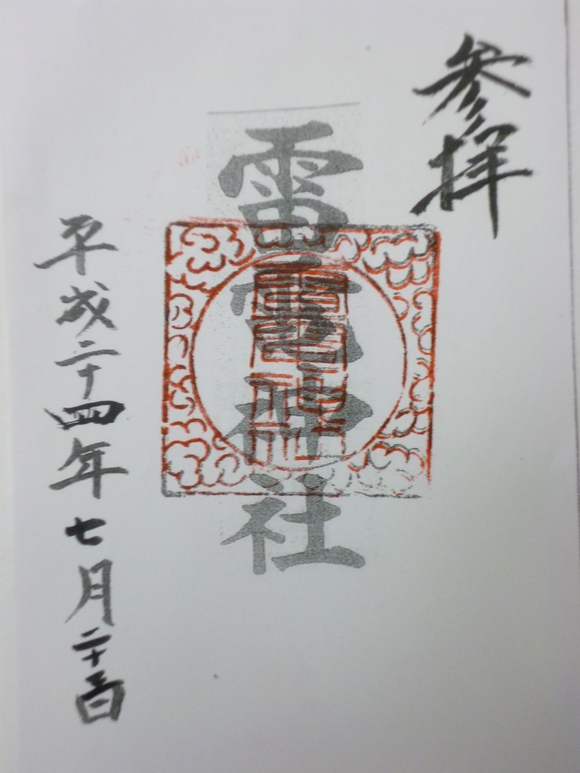 参拝
雷電神社
平成二十四年七月二十三日